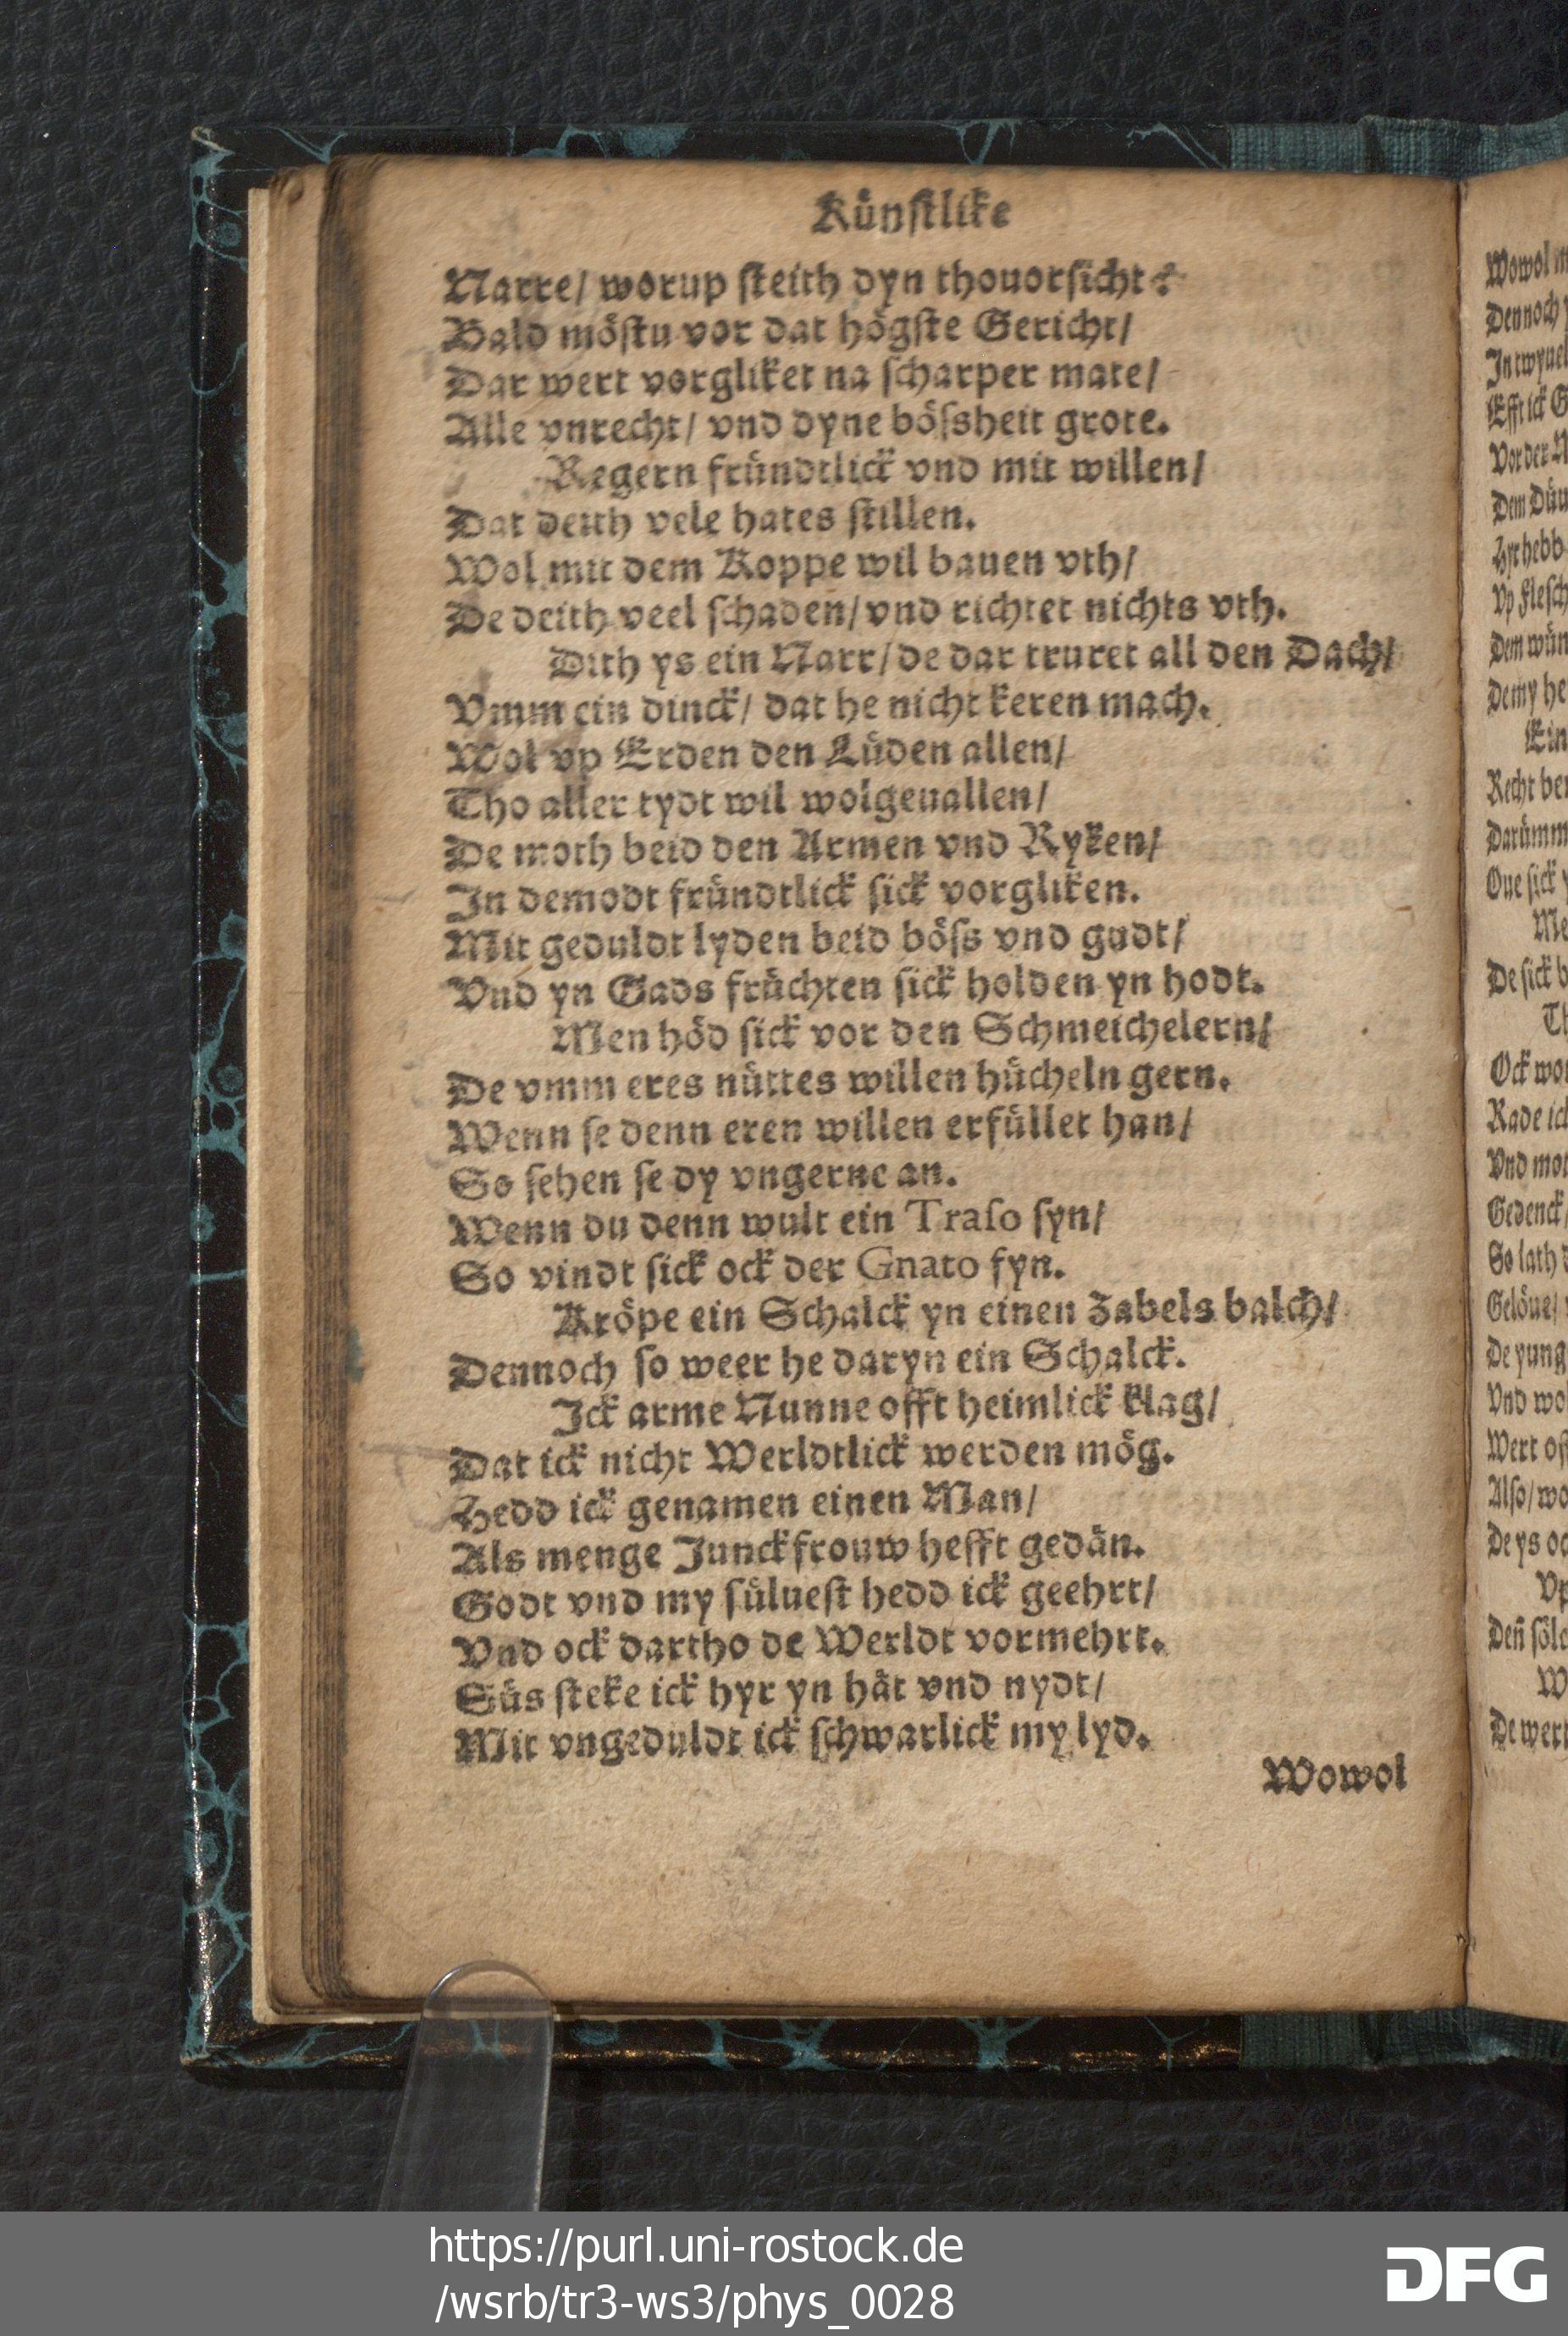 Kuͤnstlike
Narre/ worup steith dyn thouorsicht?
Bald moͤstu vor dat hoͤgste Gericht/
Dar wert vorgliket na scharper mate/
Alle vnrecht/ vnd dyne boͤssheit grote.
Regern fruͤndtlick vnd mit willen/
Dat deith vele hates stillen.
Wol mit dem Koppe wil bauen vth/
De deith veel schaden/ vnd richtet nichts vth.
Dith ys ein Narr/ de dar truret all den Dach/
Vmm ein dinck/ dat he nicht keren mach.
Wol vp Erden den Luͤden allen/
Tho aller tydt wil wolgeuallen/
De moth beid den Armen vnd Ryken/
In demodt fruͤndtlick sick vorgliken.
Mit geduldt lyden beid boͤss vnd gudt/
Vnd yn Gads fruͤchten sick holden yn hodt.
Men hoͤd sick vor den Schmeichelern/
De vmm eres nuͤttes willen huͤcheln gern.
Wenn se denn eren willen erfuͤllet han/
So sehen se dy vngerne an.
Wenn du denn wult ein Traso syn/
So vindt sick ock der Gnato fyn.
Kroͤpe ein Schalck yn einen Zabels balch/
Dennoch so weer he daryn ein Schalck.
Ick arme Nunne offt heimlick klag/
Dat ick nicht Werldtlick werden moͤg.
Hedd ick genamen einen Man/
Als menge Junckfrouw hefft gedaͤn.
Godt vnd my suͤluest hedd ick geehrt/
Vnd ock dartho de Werldt vormehrt.
Suͤs steke ick hyr yn haͤt vnd nydt/
Mit vngeduldt ick schwarlick my lyd.
Wowol
Wowol
Dennoch
In twyuel
Efft ick G
Vor der
Dem
Hyr hebb
Vp Flesch
Dem wuͤn
De my he
Ein
Recht
Daruͤmm
Oue sick
Me
De sick b
Th
Ock wo
Rade ick
Vnd mo
Gedenck/
So lath
Geloͤue/
De yung
Vnd wo
Wert
Also/ wo
De ys oc
Vp
Deñ soͤlc
W
De wer
https://purl.uni-rostock.de
/wsrb/tr3-ws3/phys_0028
DFG